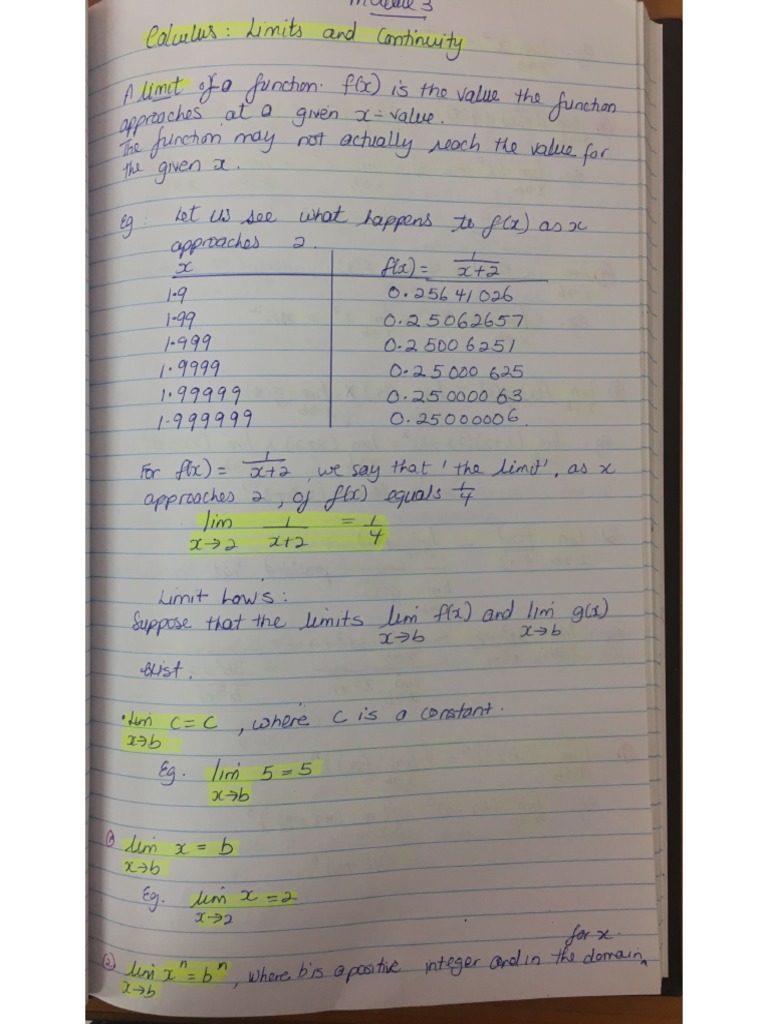 Module 3
Calculus: Limits and Continuity
A limit of a function f(x) is the value the function
approaches at a given x-value.
The function may not actually reach the value for
the given x.
Eg: Let us see what happens to f(x) as x
approaches 2.
x f(x) = 1/(x+2)
1.9 0.25641026
1.99 0.25062657
1.999 0.25006251
1.9999 0.25000625
1.99999 0.25000063
1.999999 0.25000006
For f(x) = 1/(x+2), we say that 'the limit', as x
approaches 2, of f(x) equals 1/4
lim x→2 1/(x+2) = 1/4
Limit Laws:
Suppose that the limits lim x→b f(x) and lim x→b g(x)
exist.
• lim x→b c = c, where c is a constant.
Eg. lim x→b 5 = 5
① lim x→b x = b
Eg. lim x→2 x = 2
for x.
② lim x→b xⁿ = bⁿ, where b is a positive integer and in the domain